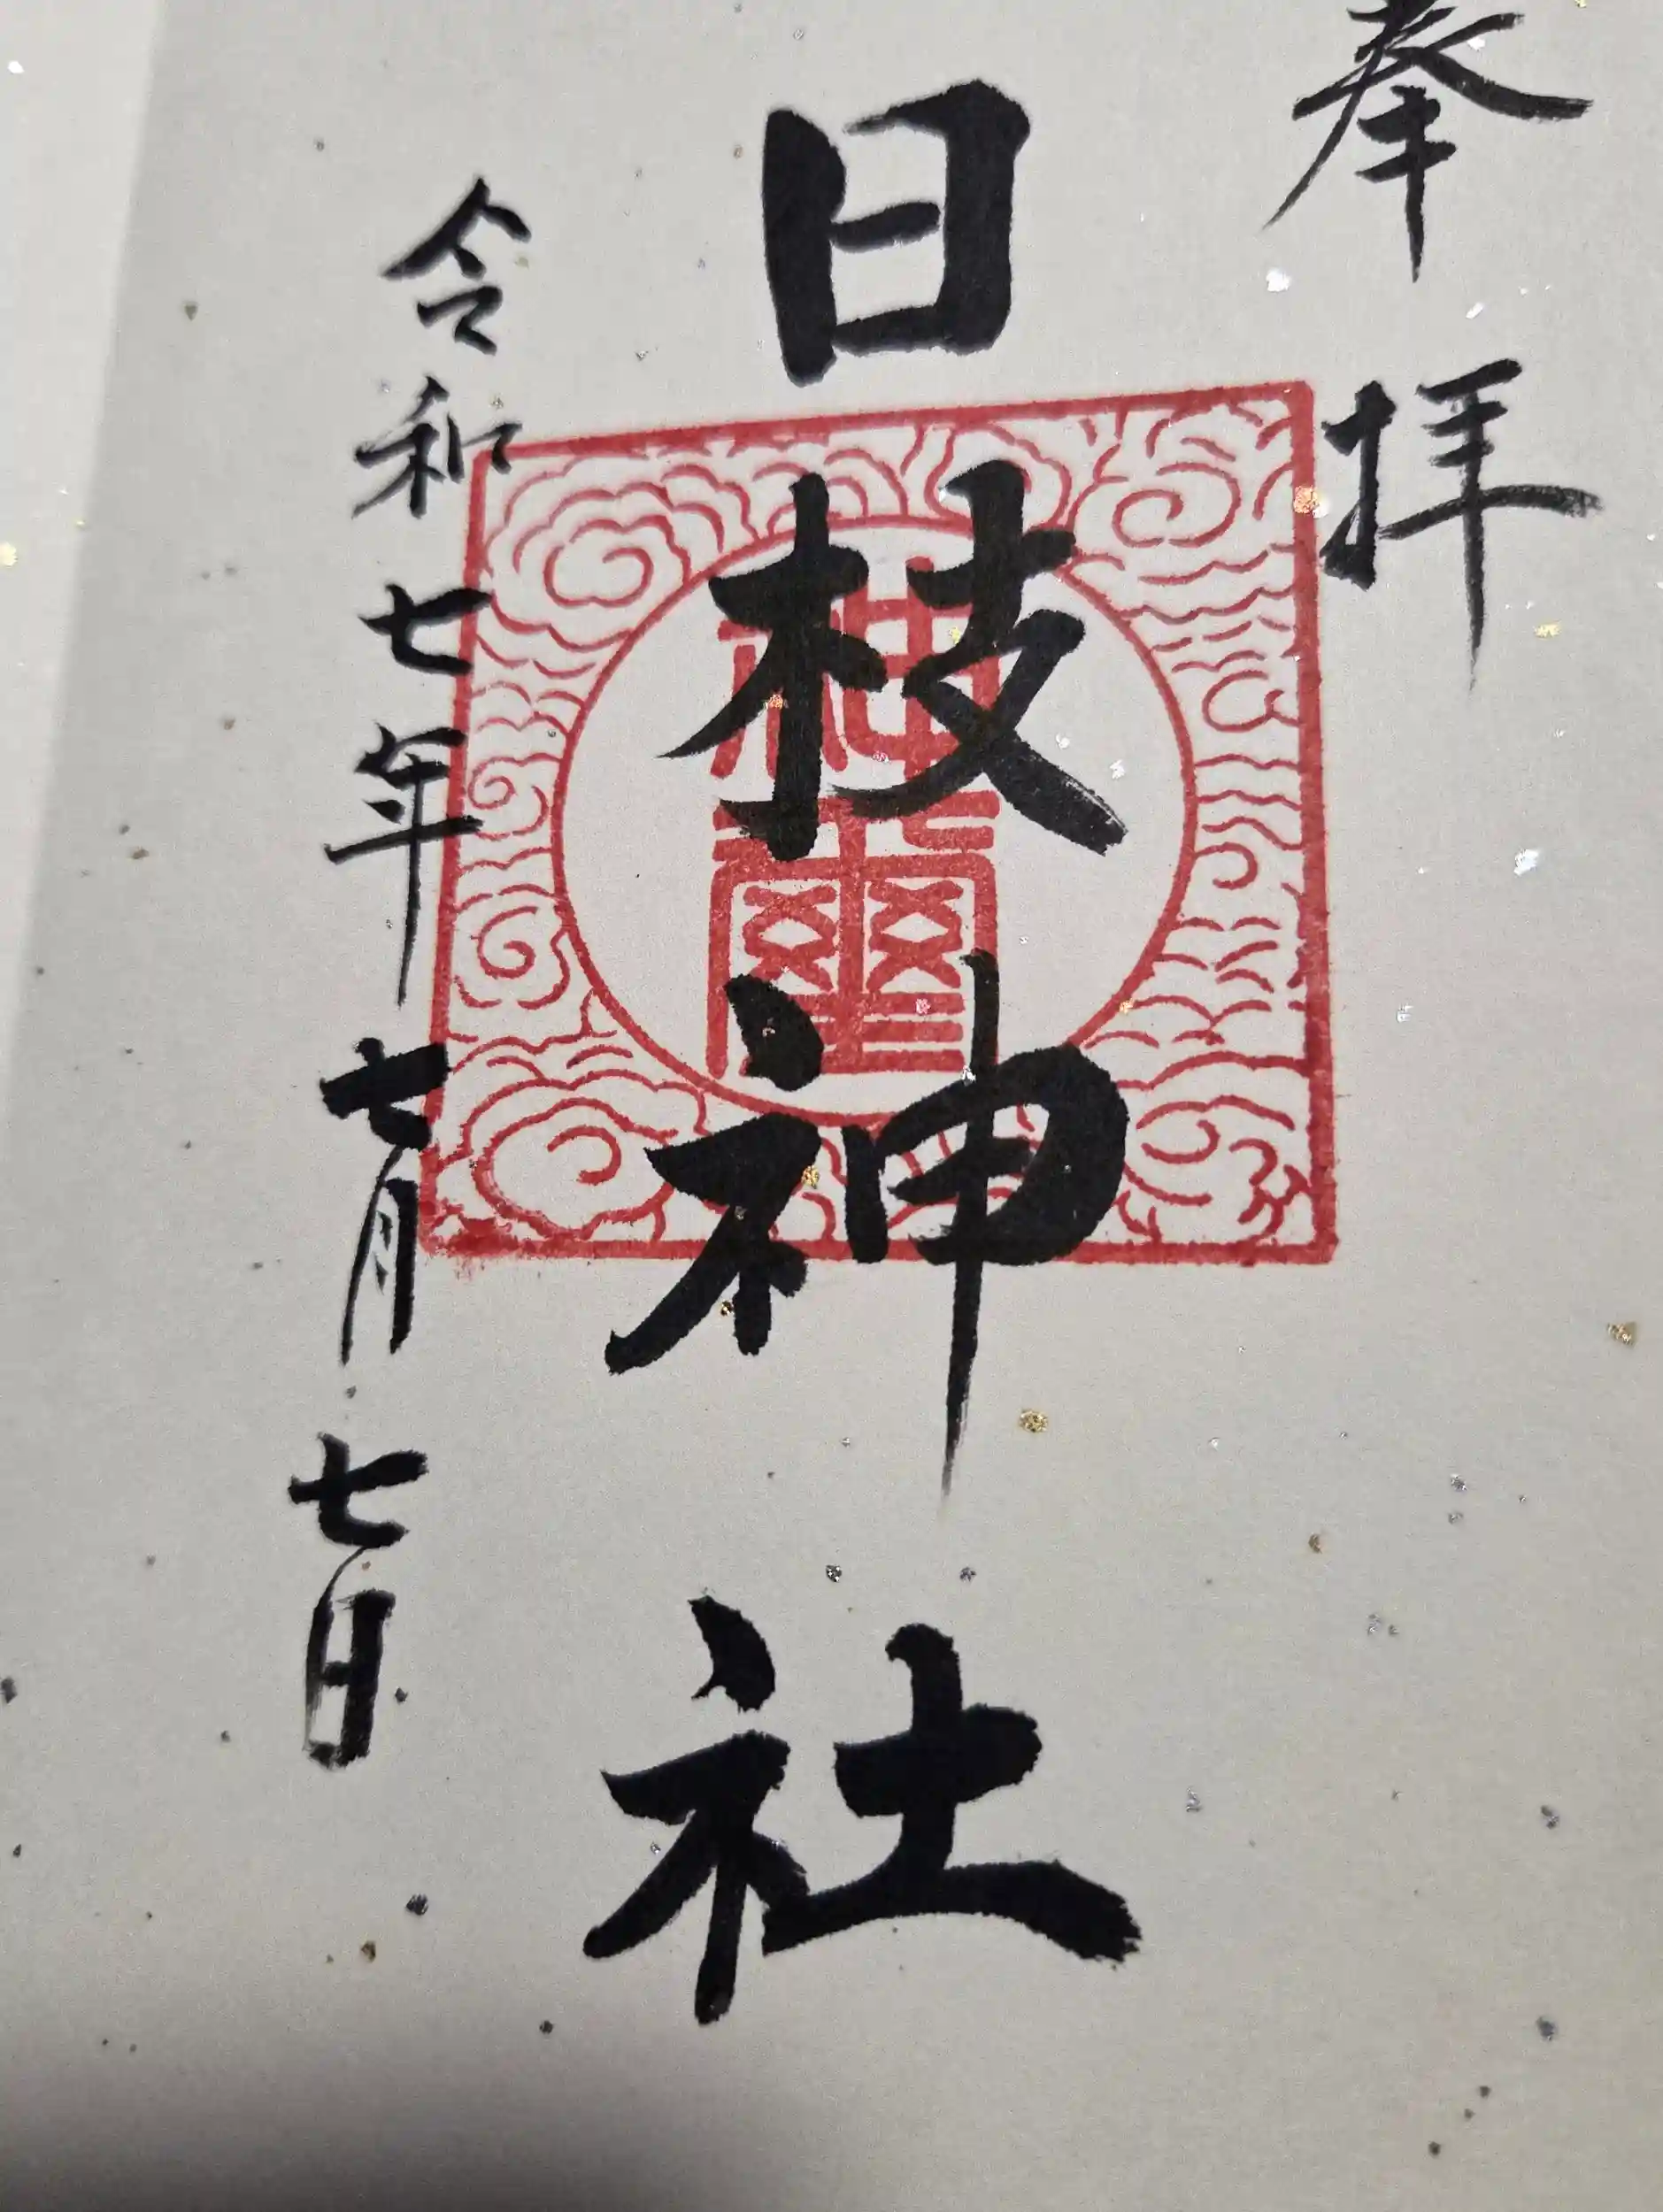 奉拝
日枝神社
神璽
令和七年七月七日